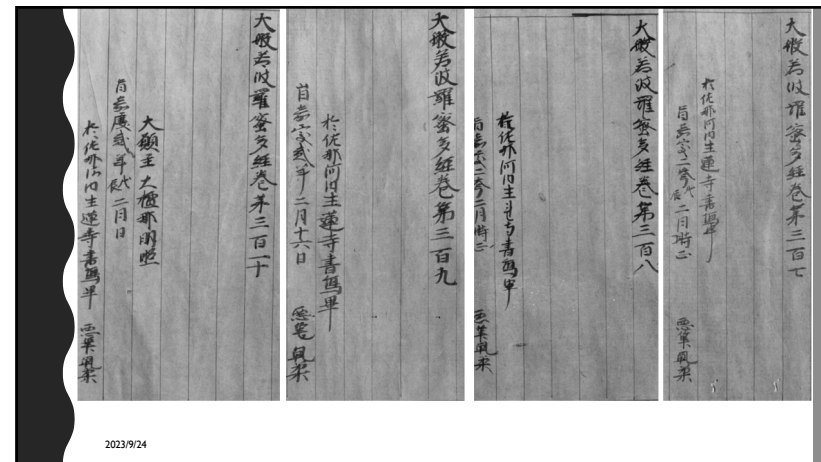 大般若波羅蜜多経巻第三百七
於佐那河内主蓮寺書写畢
二月時正
悪筆風柔
大般若波羅蜜多経巻第三百八
於佐那河内主蓮寺書写畢
二月時正
悪筆風柔
大般若波羅蜜多経巻第三百九
於佐那河内主蓮寺書写畢
嘉慶弐年二月十六日
悪筆風柔
大般若波羅蜜多経巻第三百一十
大願主 大檀那明照
嘉慶弐年 二月日
於佐那河内主蓮寺書写畢 悪筆風柔
2023/9/24